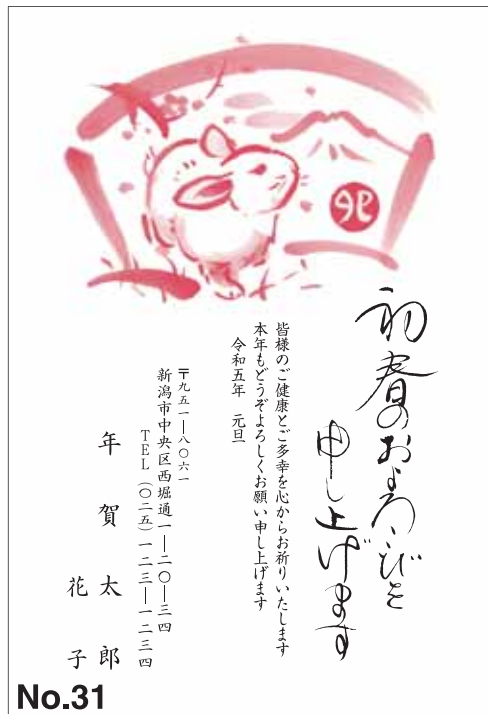 卯
初春のおよろこびを
申し上げます
皆様のご健康とご多幸を心からお祈りいたします
本年もどうぞよろしくお願い申し上げます
令和五年　元旦
〒九五一―八〇六一
新潟市中央区西堀通一―二〇―三四
TEL（〇二五）一二三―一二三四
年賀太郎
花子
No.31